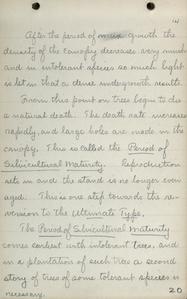 After the period of main growth the
density of the canopy decreases very much
and in intolerant species so much light
is let in that a dense undergrowth results.
From this point on trees begin to die
a natural death. The death rate increases
rapidly, and large holes are made in the
canopy. This is called the Period of
Silvicultural Maturity. Reproduction
sets in and the stand is no longer even
aged. This is one step towards the re-
version to the Ultimate Type.
The Period of Silvicultural Maturity
comes earliest with intolerant trees, and
in a plantation of such trees a second
story of trees of some tolerant species is
necessary.
20